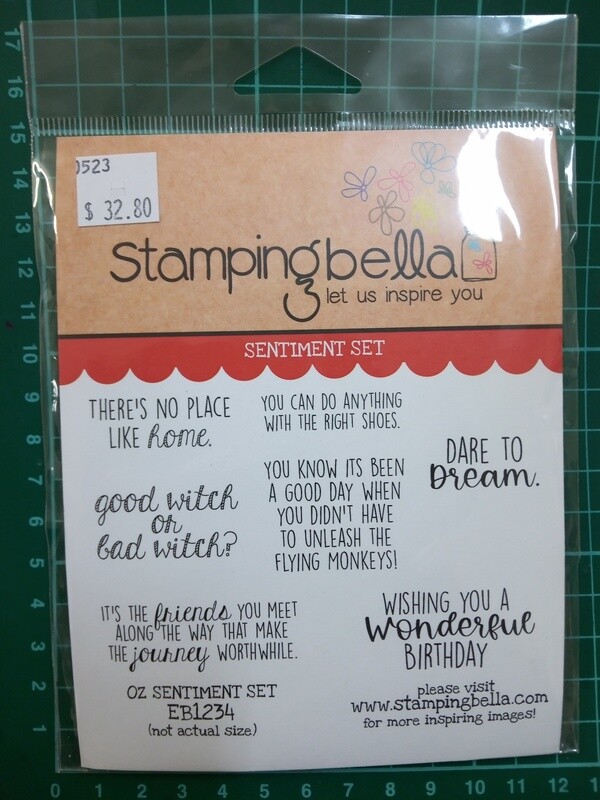 0523
$ 32.80
stampingbella
let us inspire you
SENTIMENT SET
THERE'S NO PLACE
LIKE home.
YOU CAN DO ANYTHING
WITH THE RIGHT SHOES.
DARE TO
Dream.
good witch
or
bad witch?
YOU KNOW ITS BEEN
A GOOD DAY WHEN
YOU DIDN'T HAVE
TO UNLEASH THE
FLYING MONKEYS!
IT'S THE friends YOU MEET
ALONG THE WAY THAT MAKE
THE journey WORTHWHILE.
WISHING YOU A
wonderful
BIRTHDAY
OZ SENTIMENT SET
EB1234
(not actual size)
please visit
www.stampingbella.com
for more inspiring images!
17
16
15
14
13
12
11
10
9
8
7
6
5
4
3
2
1
0 1 2 3 4 5 6 7 8 9 10 11 12